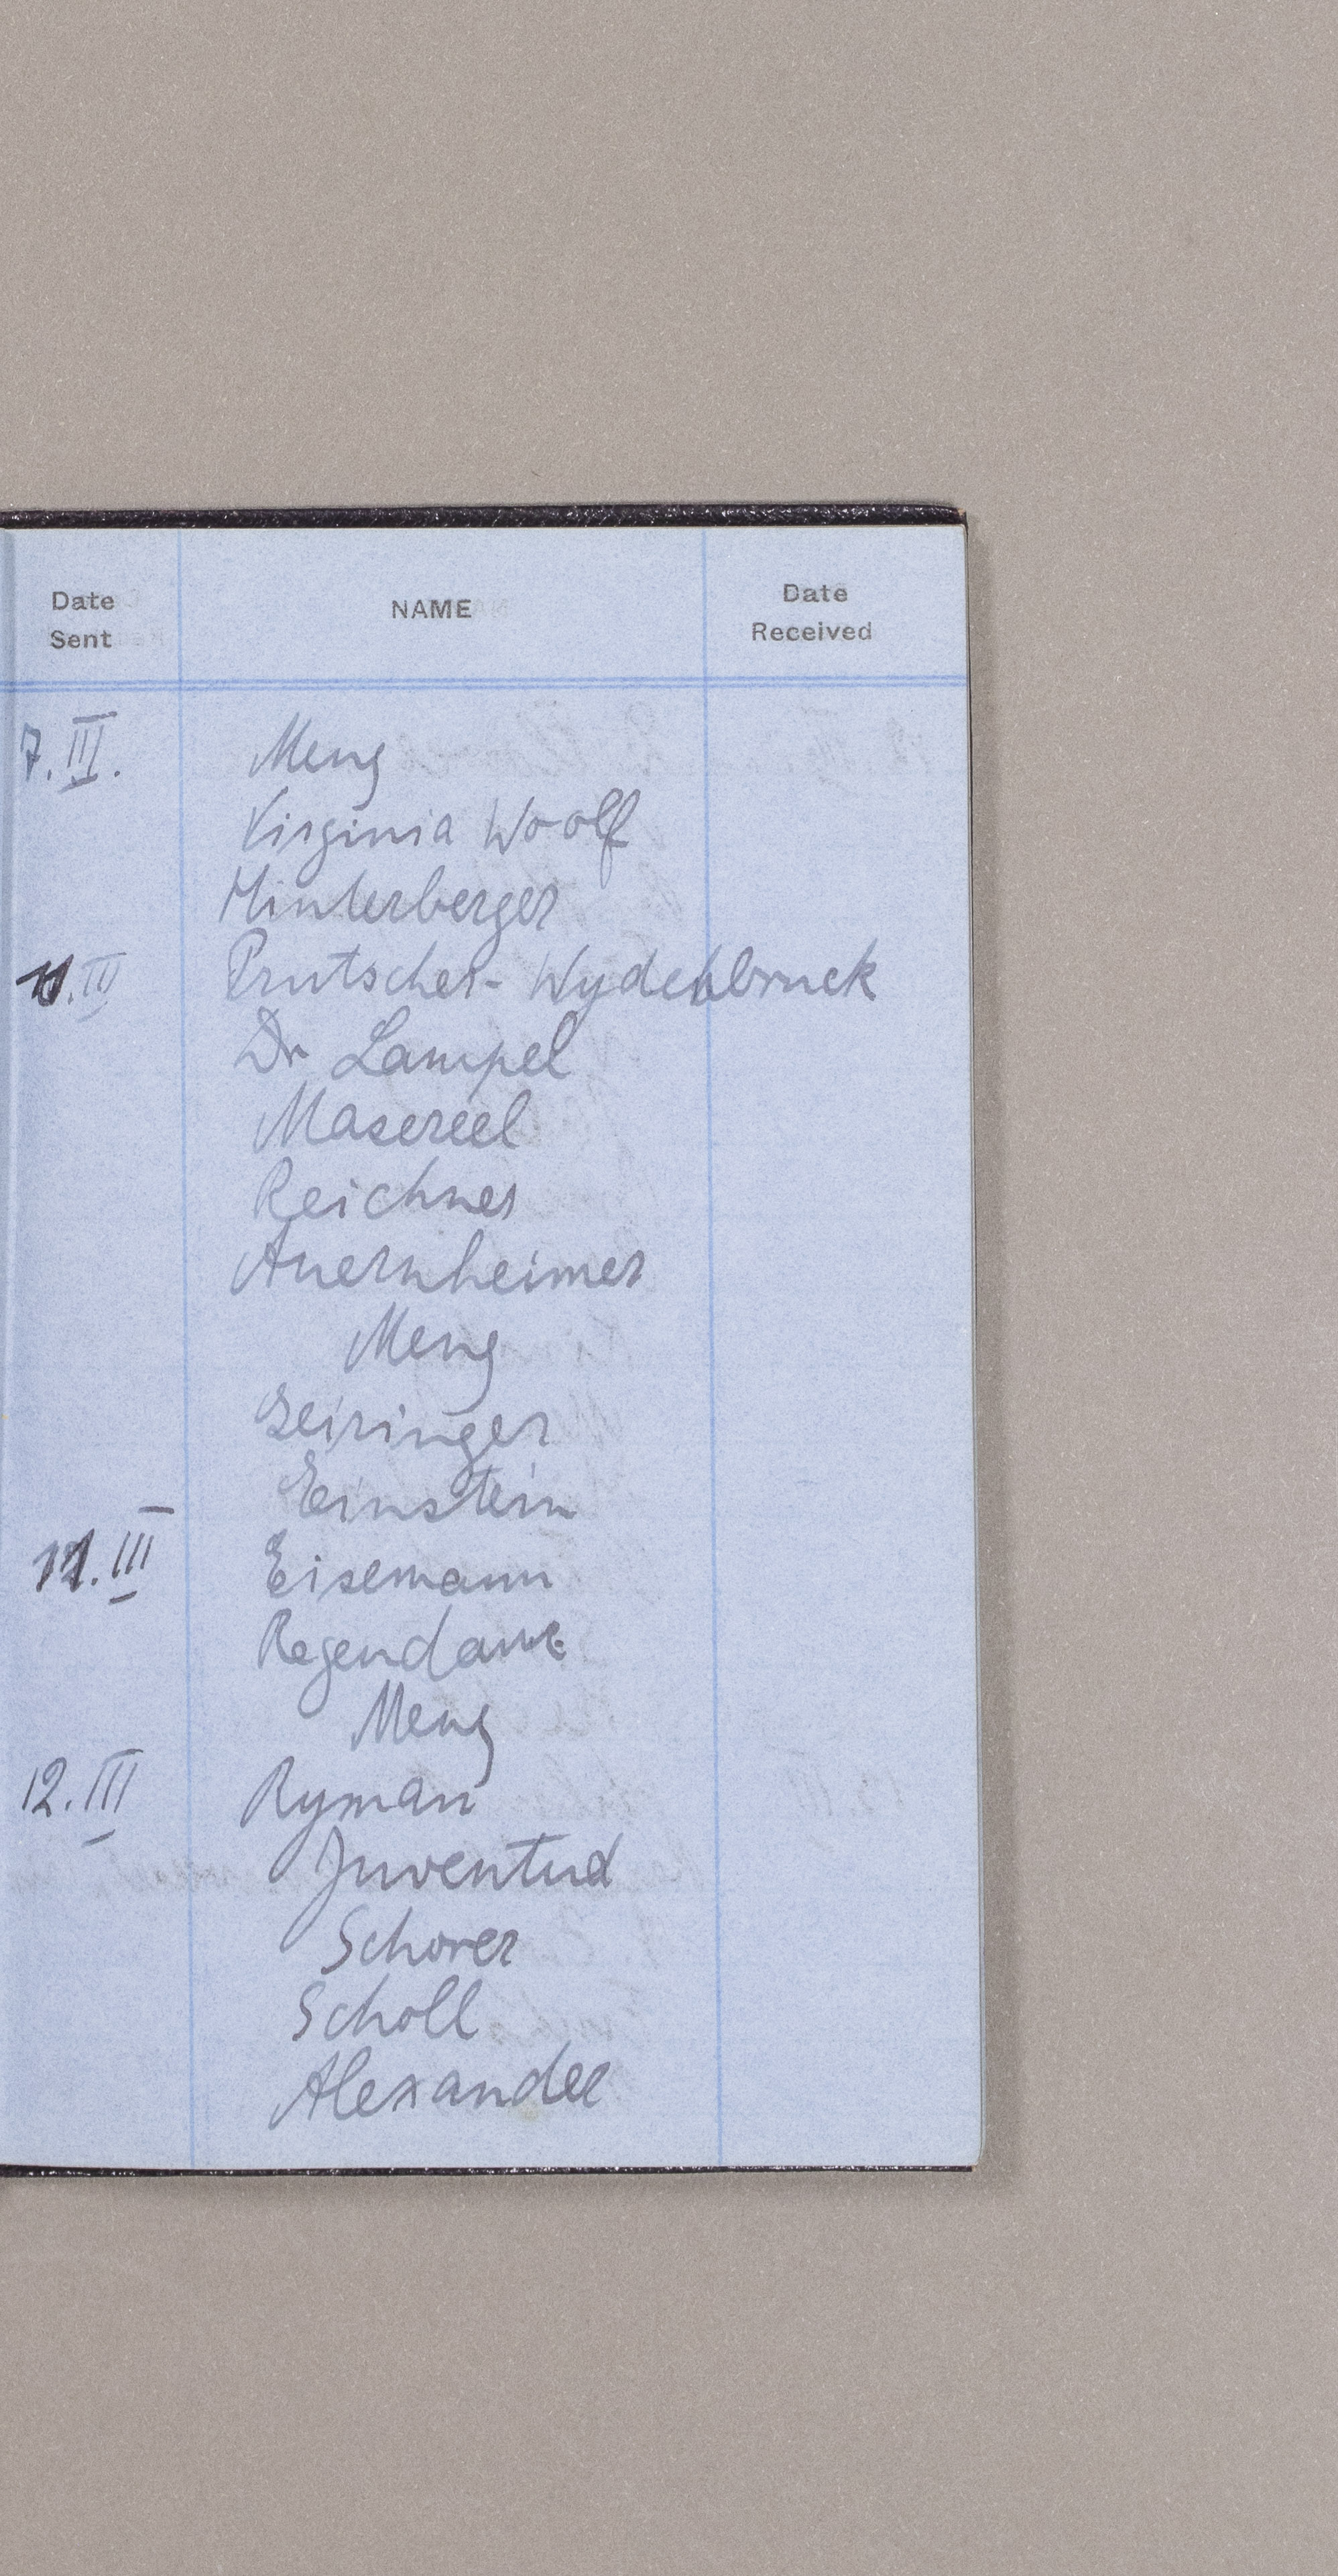 Date Sent NAME Date Received
7. III. Meng
Virginia Woolf
Hinterberger
Prutscher - Wydenbruck
Dr Lampel
Masereel
Reichner
Auernheimer
Meng
Geiringer
Einstein
11. III Eisemann
Regendanz
Meng
12. III Ryman
Juventud
Schorer
Scholl
Alexander